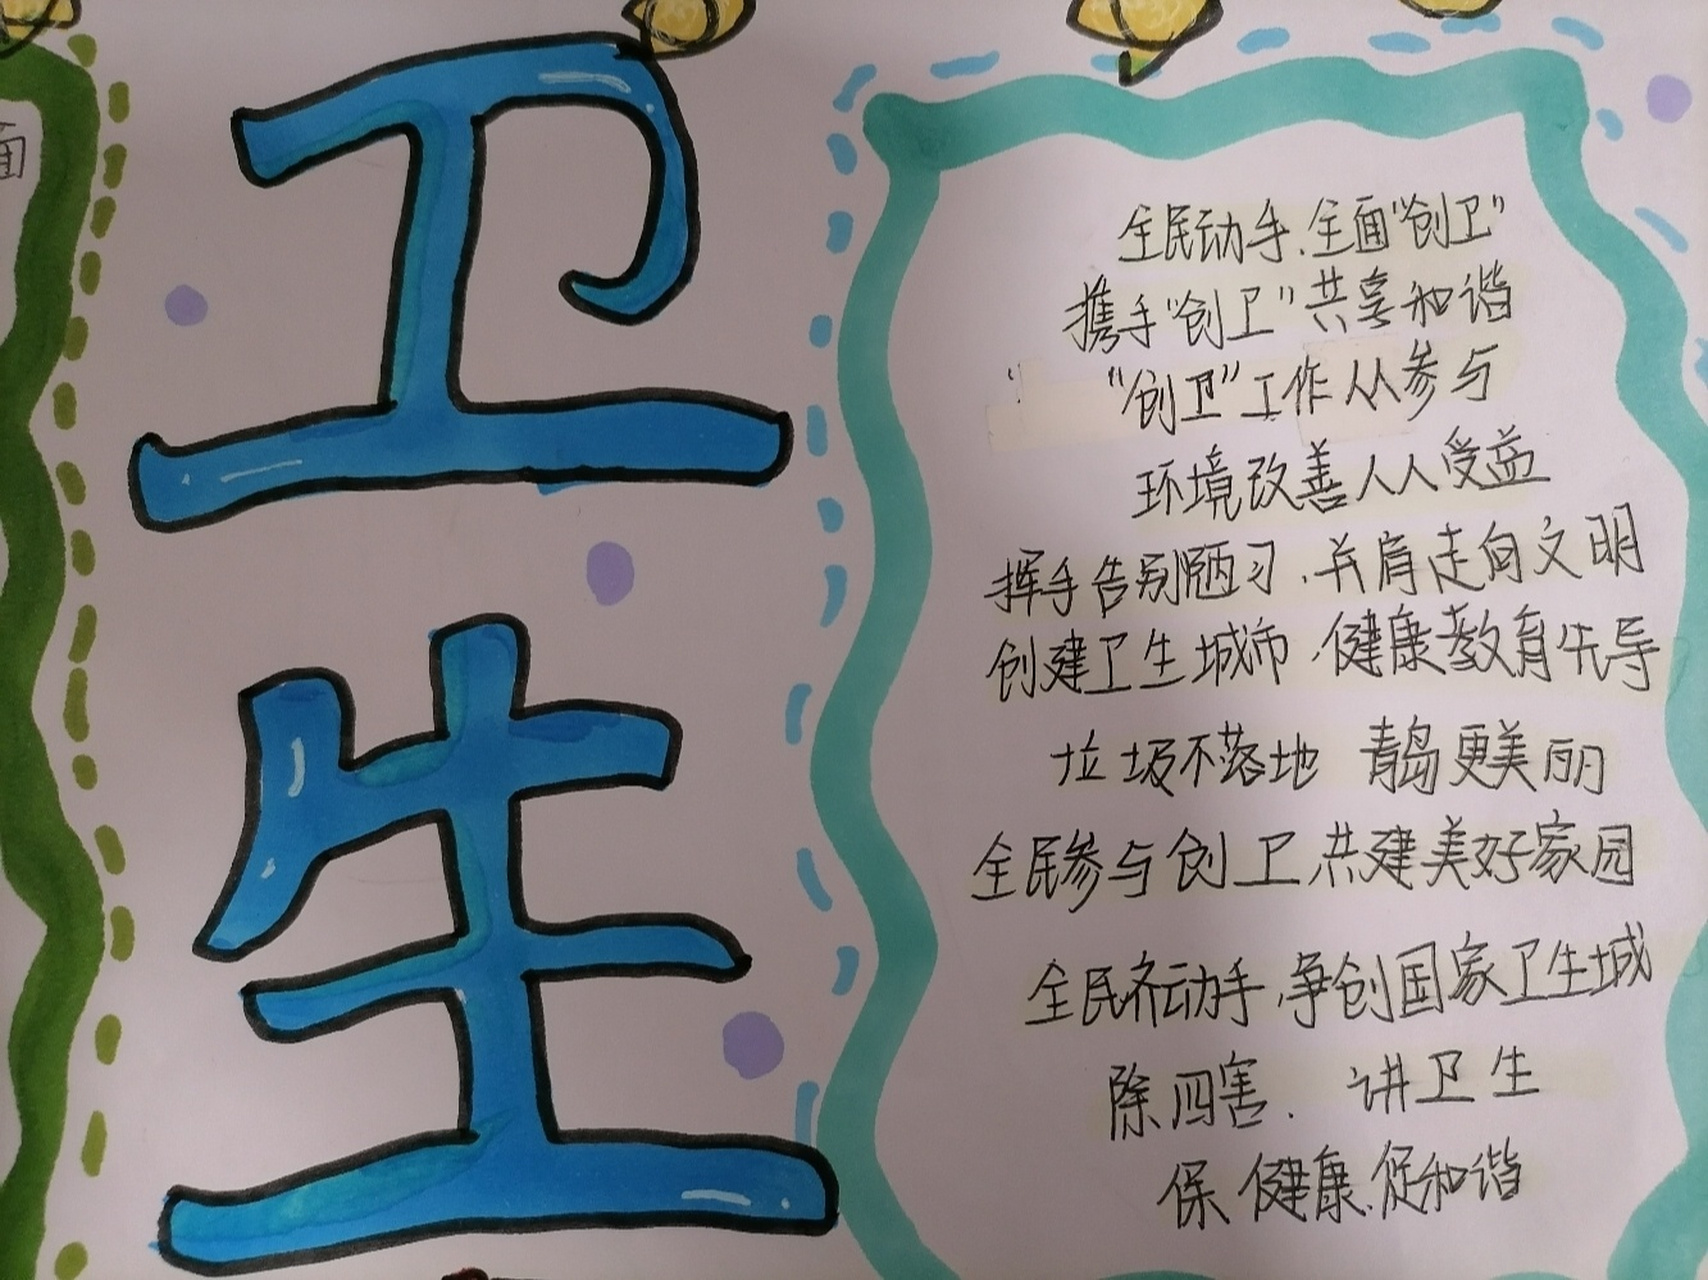 面
卫
生
全民动手、全面“创卫”
携手“创卫”共享和谐
“创卫”工作从参与
环境改善人人受益
挥手告别陋习、并肩走向文明
创建卫生城市、健康教育先导
垃圾不落地 青岛更美丽
全民参与创卫、共建美好家园
全民齐动手、争创国家卫生城
除四害、讲卫生
保健康、促和谐